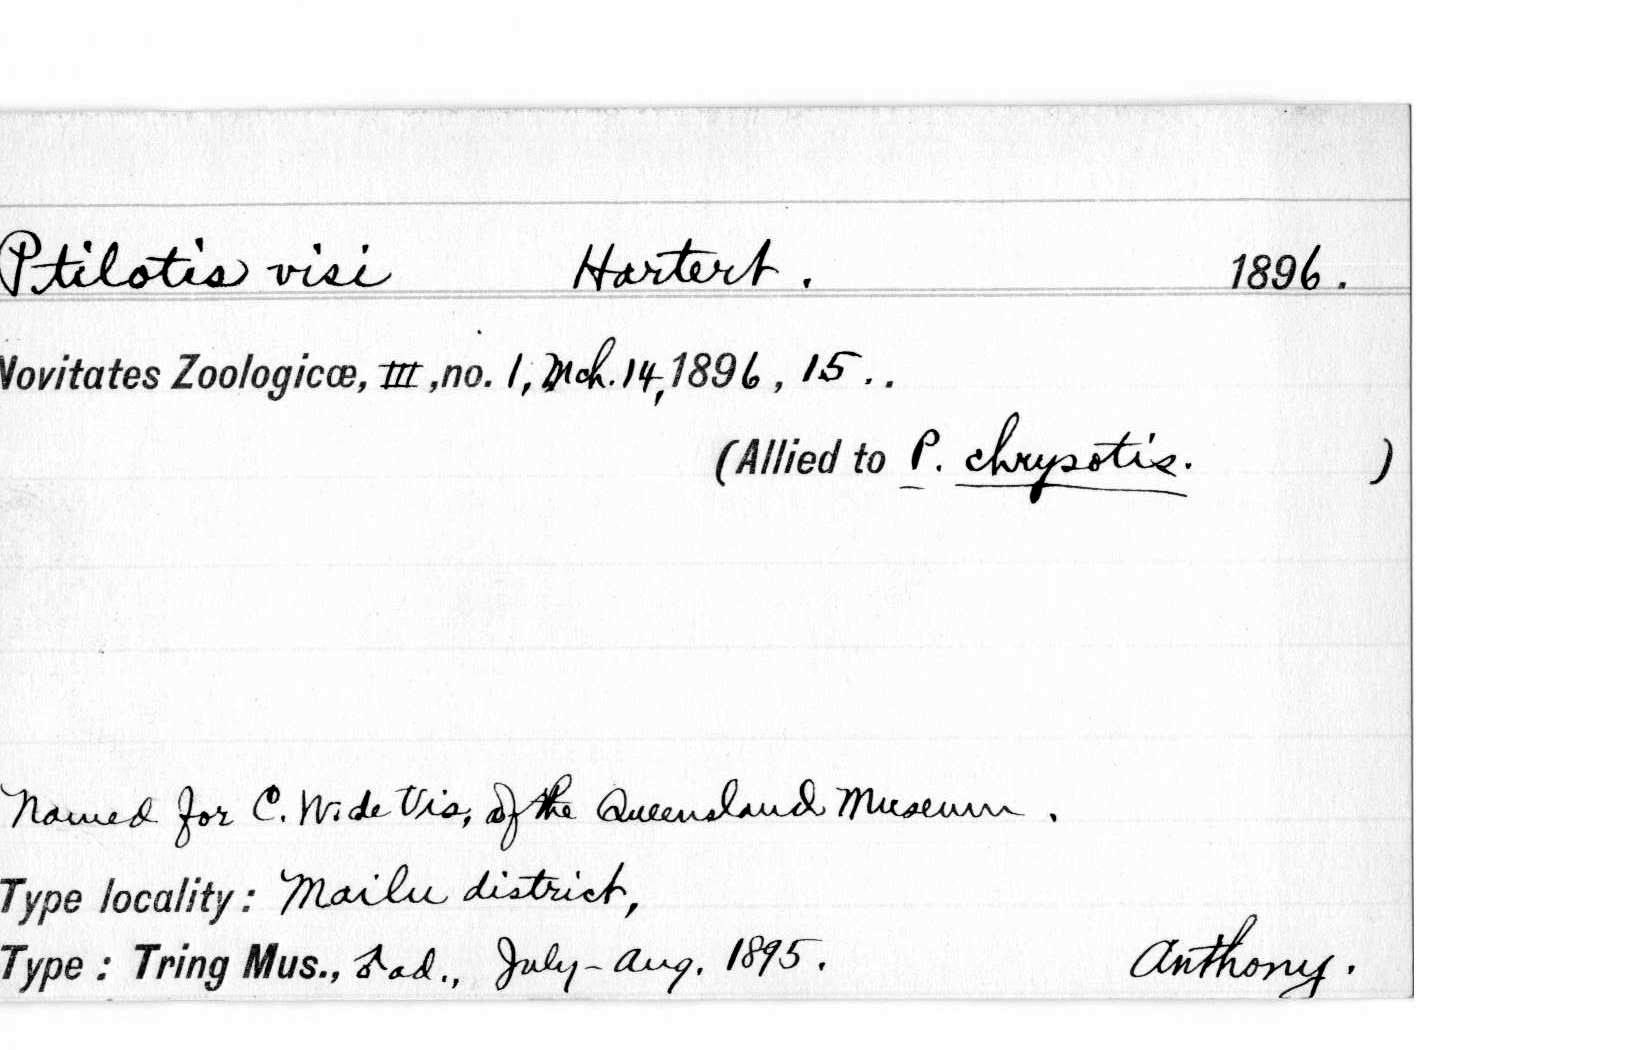 Ptilotis visi Hartert. 1896.
Novitates Zoologicœ, III, no. 1, Mch. 14, 1896, 15..
(Allied to P. chrysotis. )
Named for C. W. de Vis, of the Queensland Museum.
Type locality: Mailu district,
Type: Tring Mus., ♂ ad., July-Aug. 1895. Anthony.